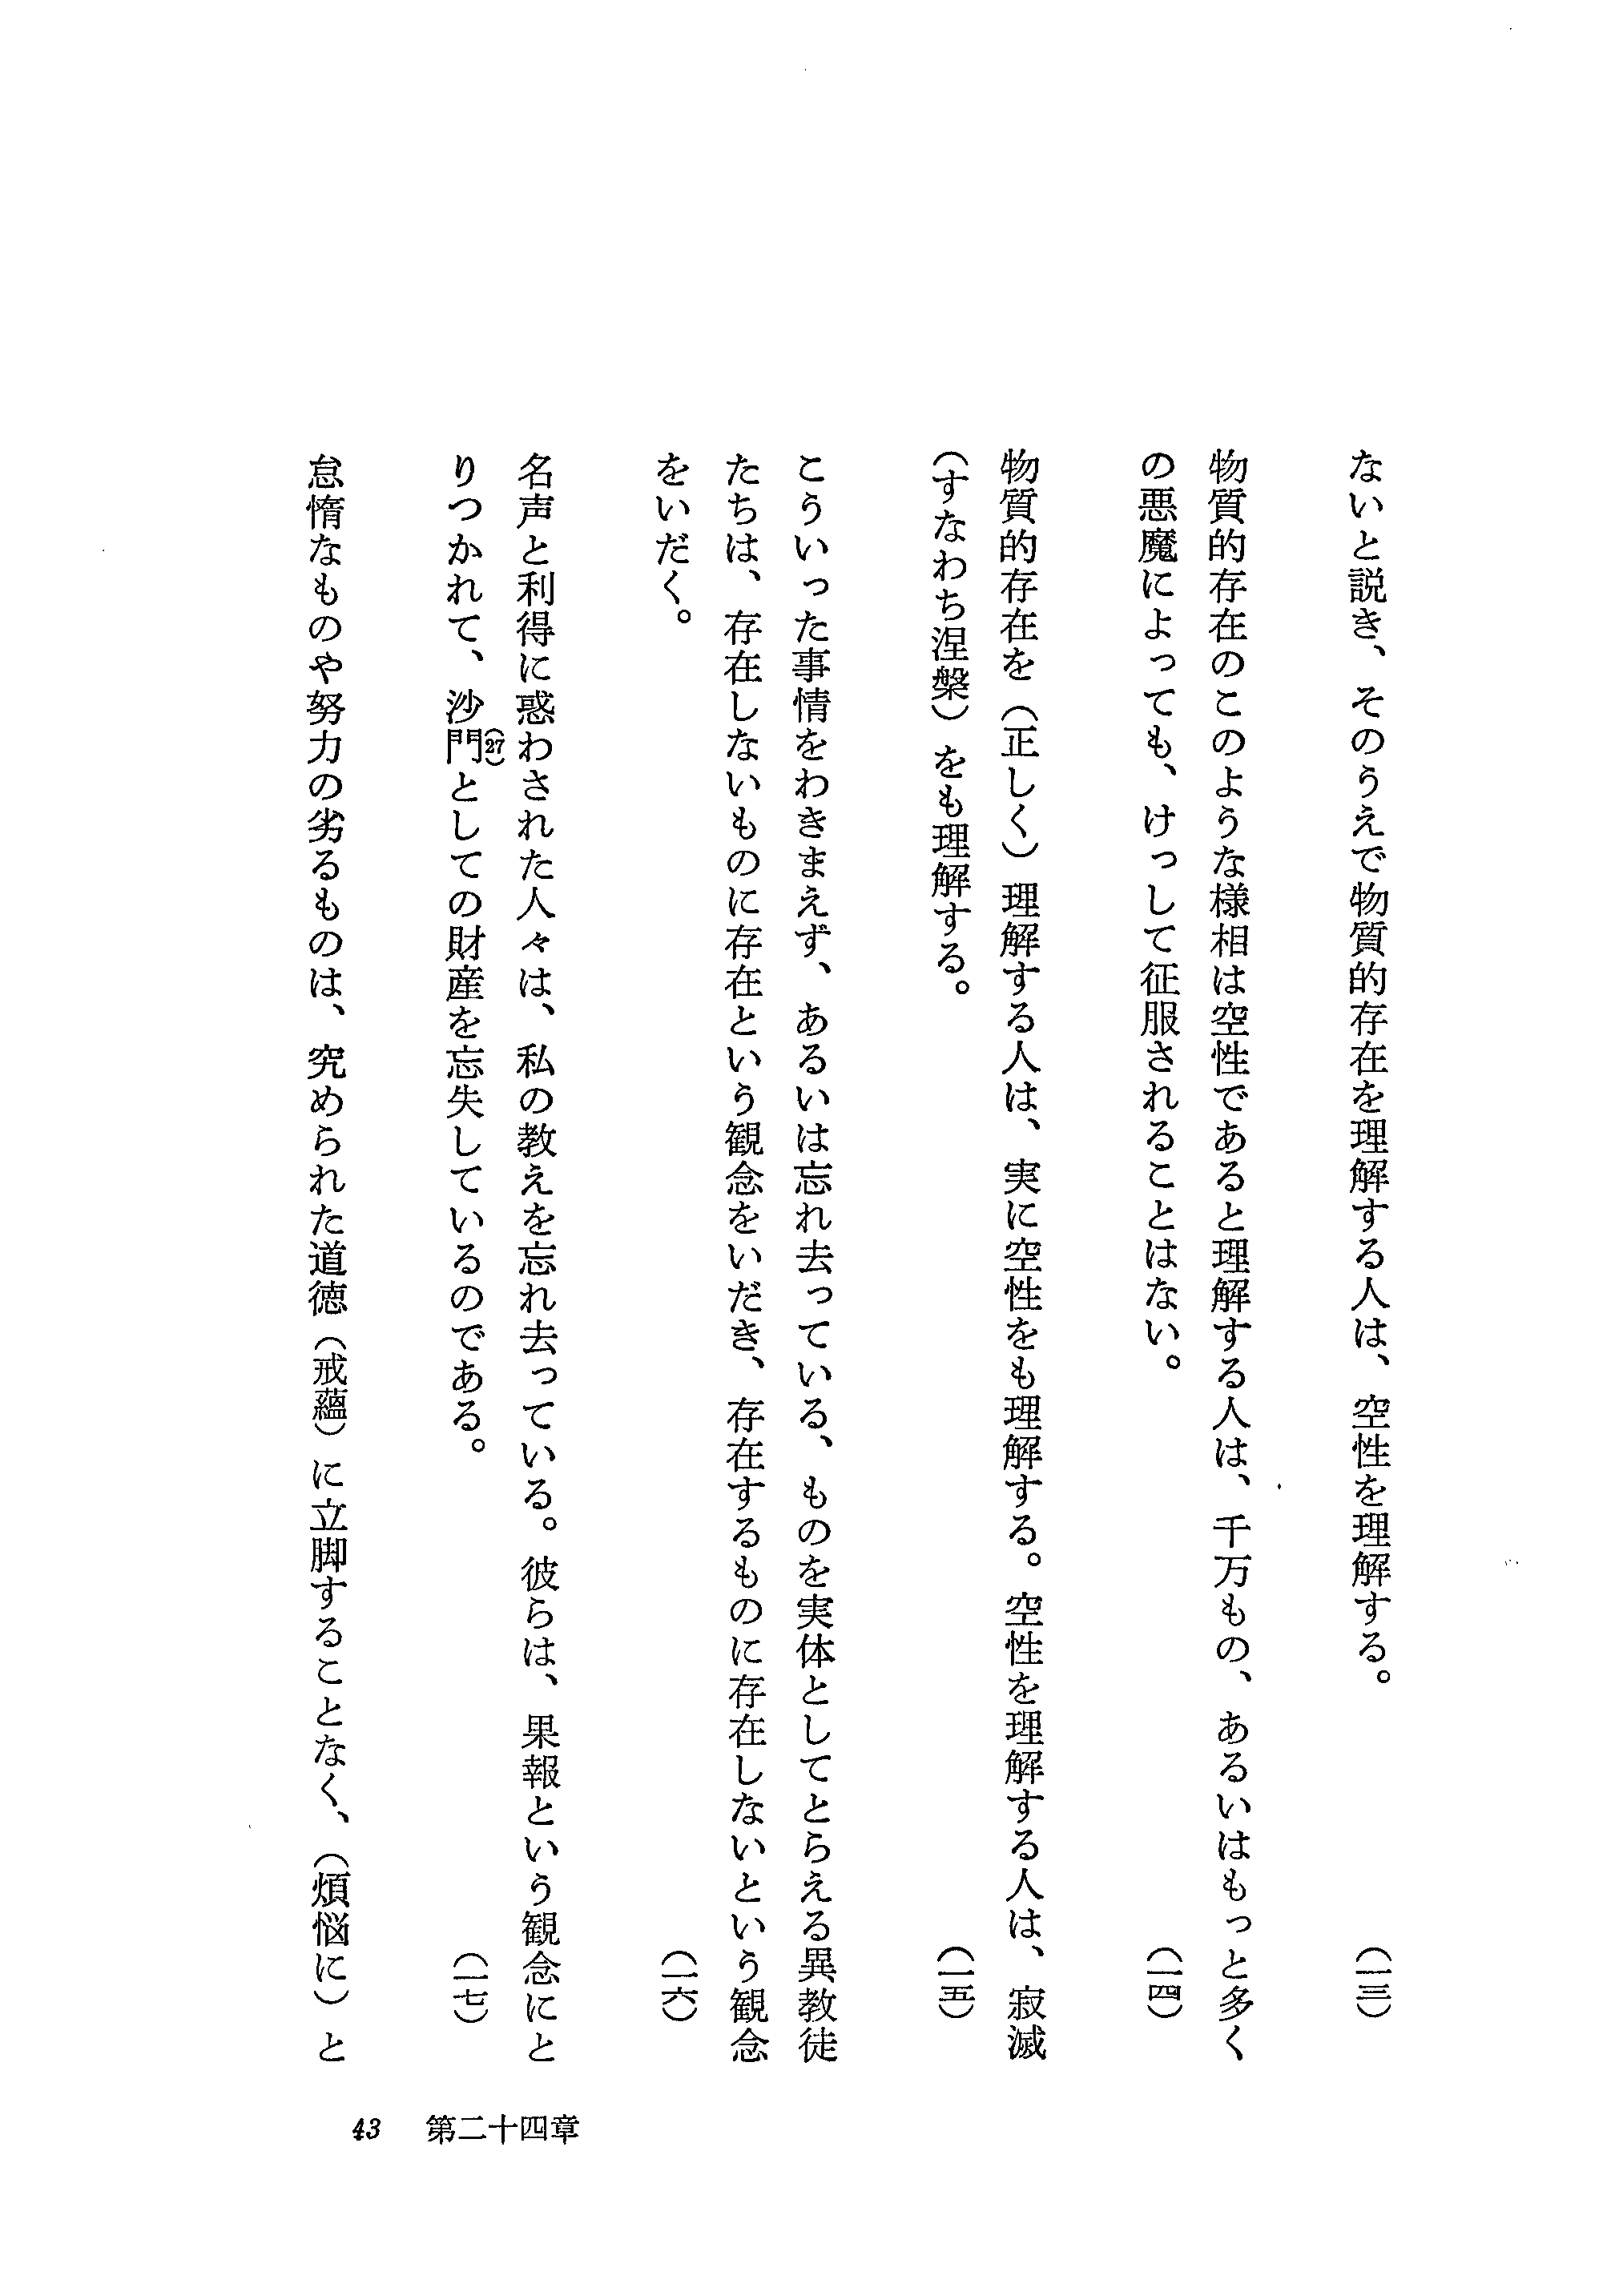 ないと説き、そのうえで物質的存在を理解する人は、空性を理解する。(一三)
物質的存在のこのような様相は空性であると理解する人は、千万もの、あるいはもっと多く
の悪魔によっても、けっして征服されることはない。(一四)
物質的存在を(正しく)理解する人は、実に空性をも理解する。空性を理解する人は、寂滅
(すなわち涅槃)をも理解する。(一五)
こういった事情をわきまえず、あるいは忘れ去っている、ものを実体としてとらえる異教徒
たちは、存在しないものに存在という観念をいだき、存在するものに存在しないという観念
をいだく。(一六)
名声と利得に惑わされた人々は、私の教えを忘れ去っている。彼らは、果報という観念にと
りつかれて、沙門(27)としての財産を忘失しているのである。(一七)
怠惰なものや努力の劣るものは、究められた道徳(戒蘊)に立脚することなく、(煩悩に)と
43 第二十四章